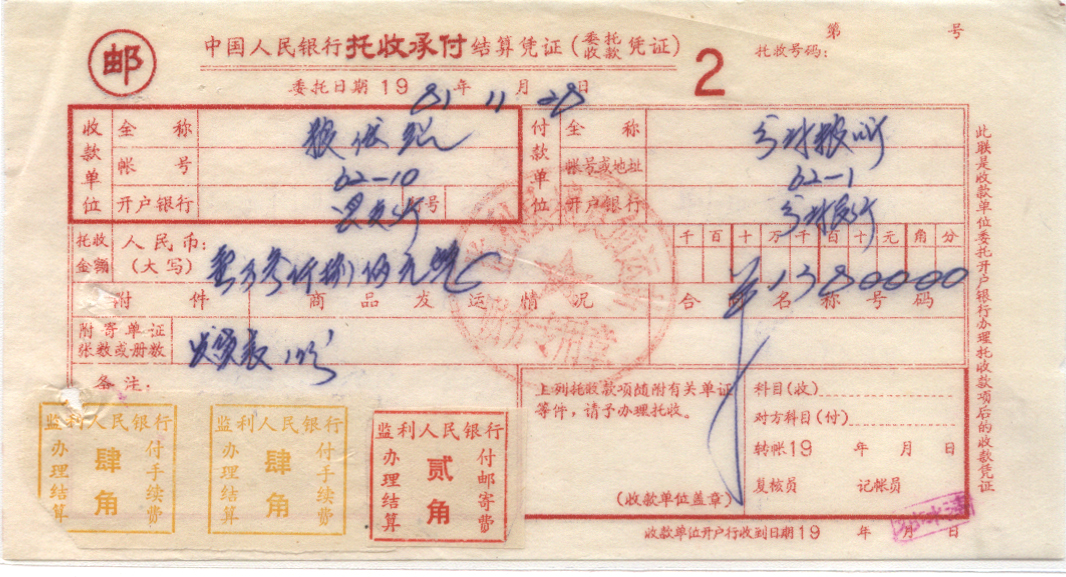 第 号
托收号码：
邮
中国人民银行托收承付结算凭证（委托收款凭证）
2
委托日期 1981年11月28日
收款单位
全称
帐号 62-10
开户银行 行号
付款单位
全称
帐号或地址 62-1
开户银行
托收金额
人民币：
（大写）壹万叁仟捌佰元
千百十万千百十元角分
¥1380000
附件 商品发运情况 合同名称号码
附寄单证张数或册数
备注：
上列托收款项随附有关单证
等件，请予办理托收。
（收款单位盖章）
科目（收）
对方科目（付）
转帐19 年 月 日
复核员 记帐员
收款单位开户行收到日期19 年 月 日
此联是收款单位委托开户银行办理托收款项后的收款凭证
监利人民银行
办理结算
肆角
付手续费
监利人民银行
办理结算
肆角
付手续费
监利人民银行
办理结算
贰角
付邮寄费
财务专用章